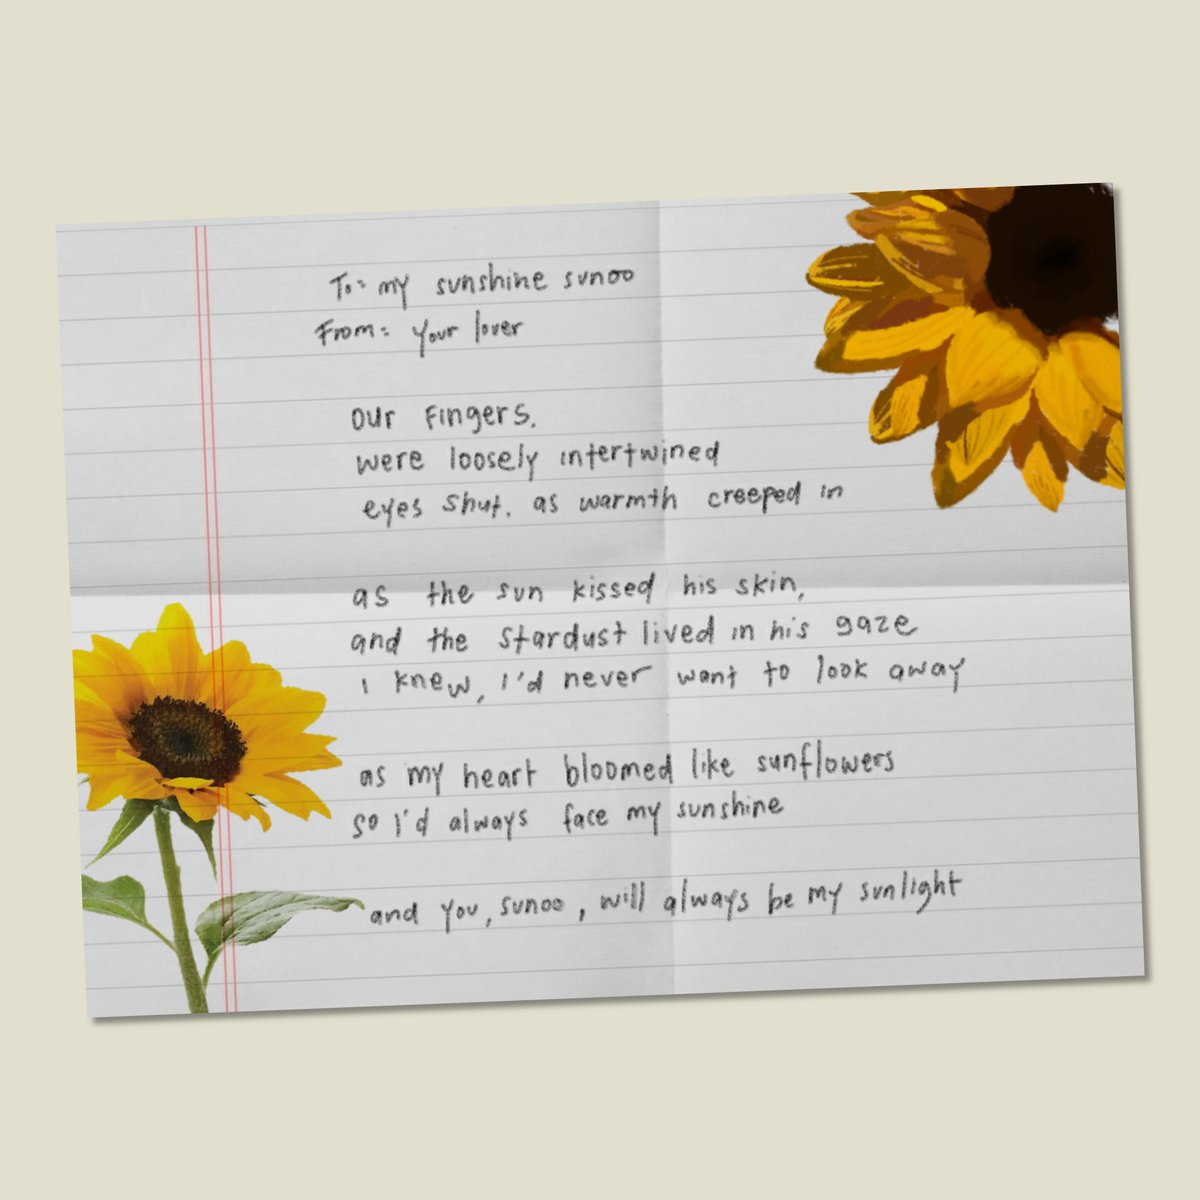 To: my sunshine sunoo
From: your lover
our Fingers.
were loosely intertwined
eyes shut. as warmth creeped in
as the sun kissed his skin,
and the stardust lived in his gaze
i knew, i'd never want to look away
as my heart bloomed like sunflowers
so i'd always face my sunshine
and you, sunoo, will always be my sunlight